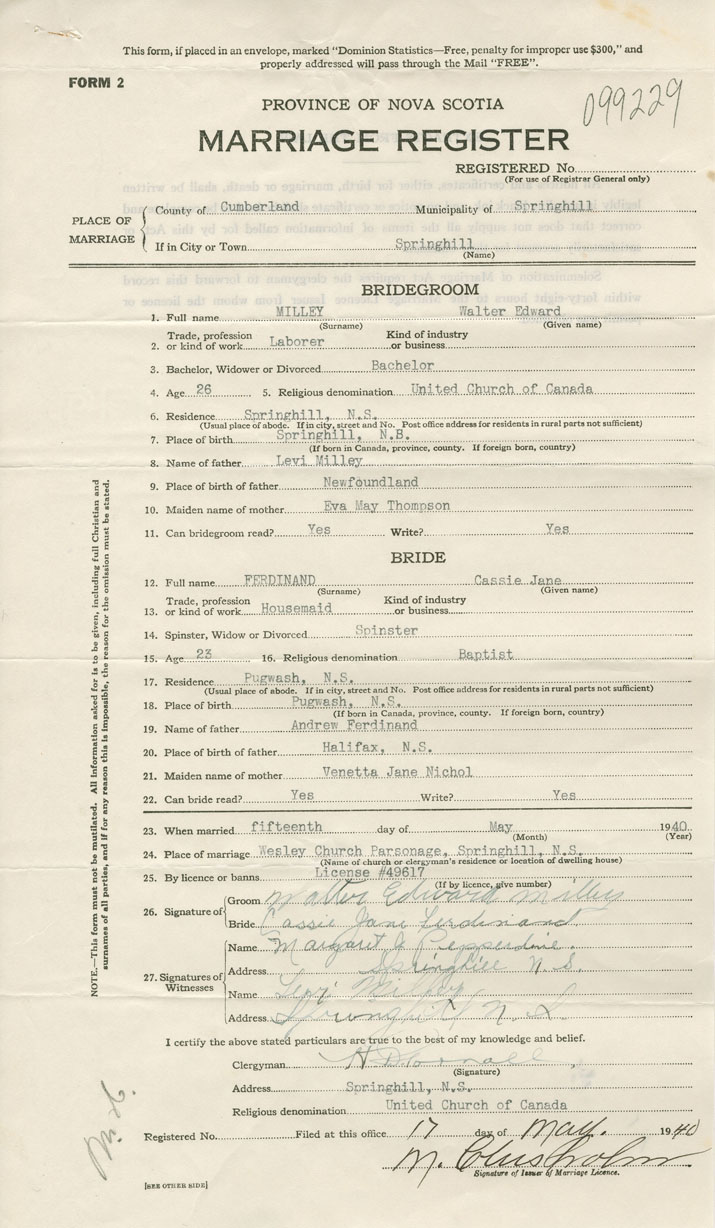 This form, if placed in an envelope, marked "Dominion Statistics—Free, penalty for improper use $300," and
properly addressed will pass through the Mail "FREE".
FORM 2
099229
PROVINCE OF NOVA SCOTIA
MARRIAGE REGISTER
REGISTERED No.
(For use of Registrar General only)
PLACE OF MARRIAGE
County of Cumberland Municipality of Springhill
If in City or Town Springhill
(Name)
BRIDEGROOM
1. Full name MILLEY Walter Edward
(Surname) (Given name)
2. Trade, profession or kind of work Laborer Kind of industry or business
3. Bachelor, Widower or Divorced Bachelor
4. Age 26 5. Religious denomination United Church of Canada
6. Residence Springhill, N.S.
(Usual place of abode. If in city, street and No. Post office address for residents in rural parts not sufficient)
7. Place of birth Springhill, N.B.
(If born in Canada, province, county. If foreign born, country)
8. Name of father Levi Milley
9. Place of birth of father Newfoundland
10. Maiden name of mother Eva May Thompson
11. Can bridegroom read? Yes Write? Yes
BRIDE
12. Full name FERDINAND Cassie Jane
(Surname) (Given name)
13. Trade, profession or kind of work Housemaid Kind of industry or business
14. Spinster, Widow or Divorced Spinster
15. Age 23 16. Religious denomination Baptist
17. Residence Pugwash, N.S.
(Usual place of abode. If in city, street and No. Post office address for residents in rural parts not sufficient)
18. Place of birth Pugwash, N.S.
(If born in Canada, province, county. If foreign born, country)
19. Name of father Andrew Ferdinand
20. Place of birth of father Halifax, N.S.
21. Maiden name of mother Venetta Jane Nichol
22. Can bride read? Yes Write? Yes
23. When married fifteenth day of May 1940
(Month) (Year)
24. Place of marriage Wesley Church Parsonage, Springhill, N.S.
(Name of church or clergyman's residence or location of dwelling house)
25. By licence or banns License #49617
(If by licence, give number)
26. Signature of
Groom Walter Edward Milley
Bride Cassie Jane Ferdinand
27. Signatures of Witnesses
Name Margaret
Address Springhill N.S.
Name Levi Milley
Address Springhill N.S.
I certify the above stated particulars are true to the best of my knowledge and belief.
Clergyman
(Signature)
Address Springhill, N.S.
Religious denomination United Church of Canada
Registered No. Filed at this office 17 day of May. 1940
M. Chisholm
Signature of Issuer of Marriage Licence.
[SEE OTHER SIDE]
NOTE.—This form must not be mutilated. All information asked for is to be given, including full Christian and
surnames of all parties, and if for any reason this is impossible, the reason for the omission must be stated.